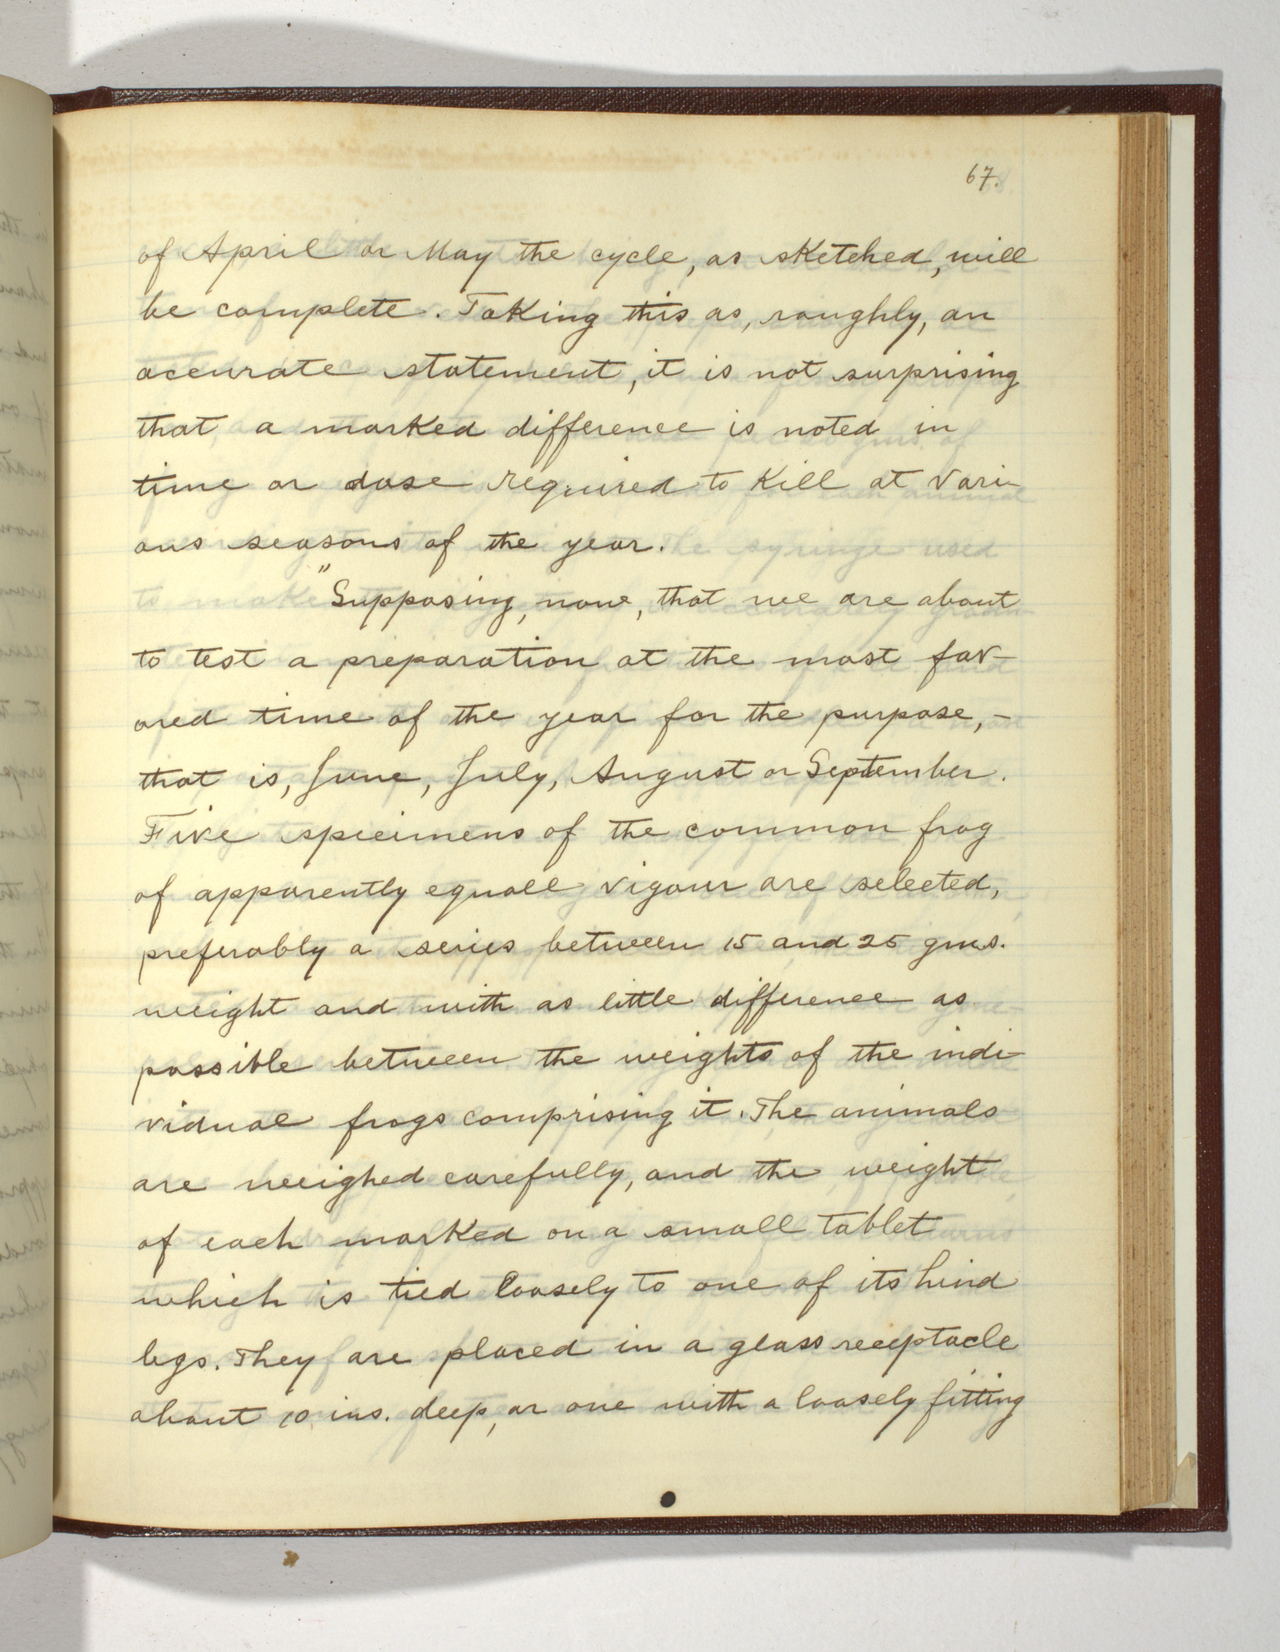 67.
of April or May the cycle, as sketched, will
be complete. Taking this as, roughly, an
accurate statement, it is not surprising
that a marked difference is noted in
time or dose required to kill at vari-
ous seasons of the year.
"Supposing, now, that we are about
to test a preparation at the most fav-
ored time of the year for the purpose,-
that is, June, July, August or September.
Five specimens of the common frog
of apparently equall vigour are selected,
preferably a series between 15 and 25 gms.
weight and with as little difference as
possible between the weights of the indi-
vidual frogs comprising it. The animals
are weighed carefully, and the weight
of each marked on a small tablet
which is tied loosely to one of its hind
legs. They are placed in a glass receptacle
about 10 ins. deep, or one with a loosely fitting